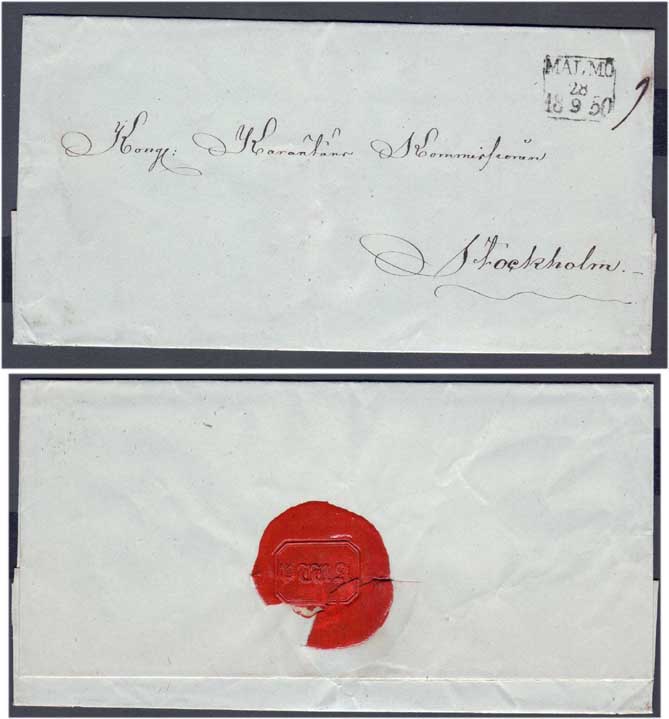 MALMÖ
28
18 9 50
Kongl: Karantäns Kommissionen
Stockholm.